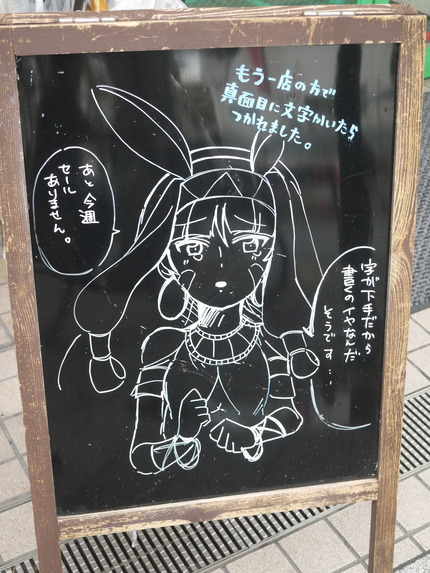 もう一店の方で
真面目に文字かいたら
つかれました。
字が下手だから
書くのイヤなんだ
そうです…
あと今週
セール
ありません。